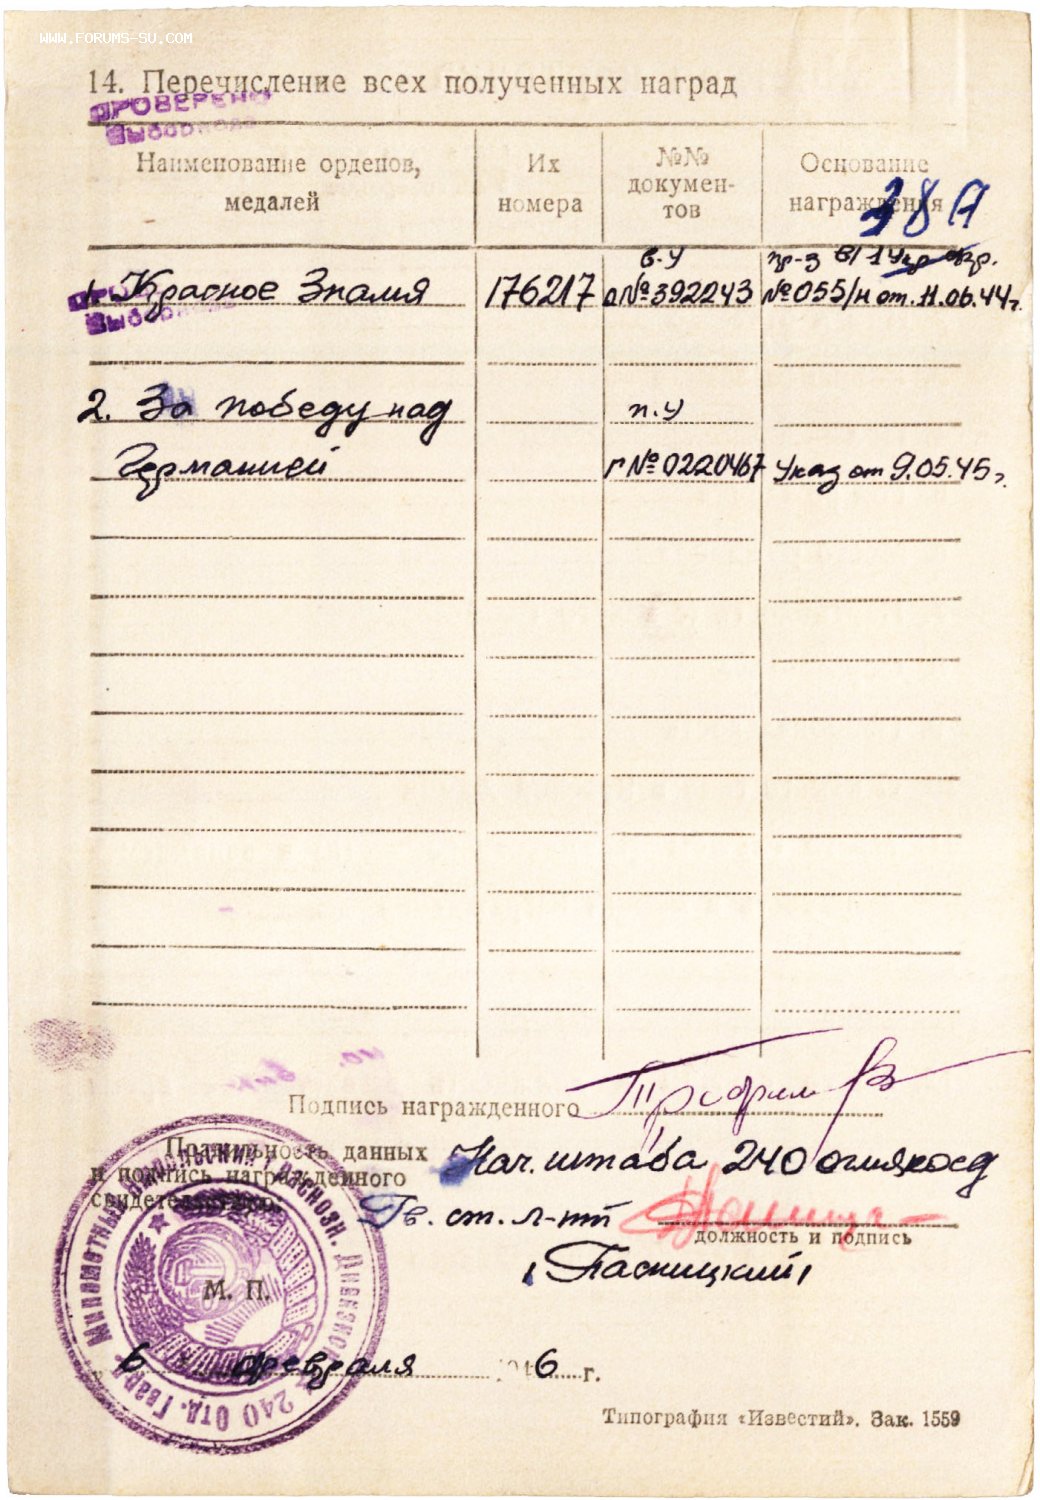 WWW.FORUMS-SU.COM
14. Перечисление всех полученных наград
ПРОВЕРЕНО
Выборкова
Наименование орденов, медалей
Их номера
№№ документов
Основание награждения
38А
1. Красное Знамя
176217
в-у
№392243
пр-з В/ 1 Укр фр.
№055/н от. 11.06.44г.
2. За победу над
п.у
Германией
г №0220467
Указ от 9.05.45г.
Подпись награжденного
Правильность данных
и подпись награжденного
свидетельствую:
Нач. штаба 240
Гв. ст. л-нт
должность и подпись
/Пасницкий/
М. П.
6 февраля 1946 г.
240 Отд. Гвард. Минометный
Типография «Известий». Зак. 1559